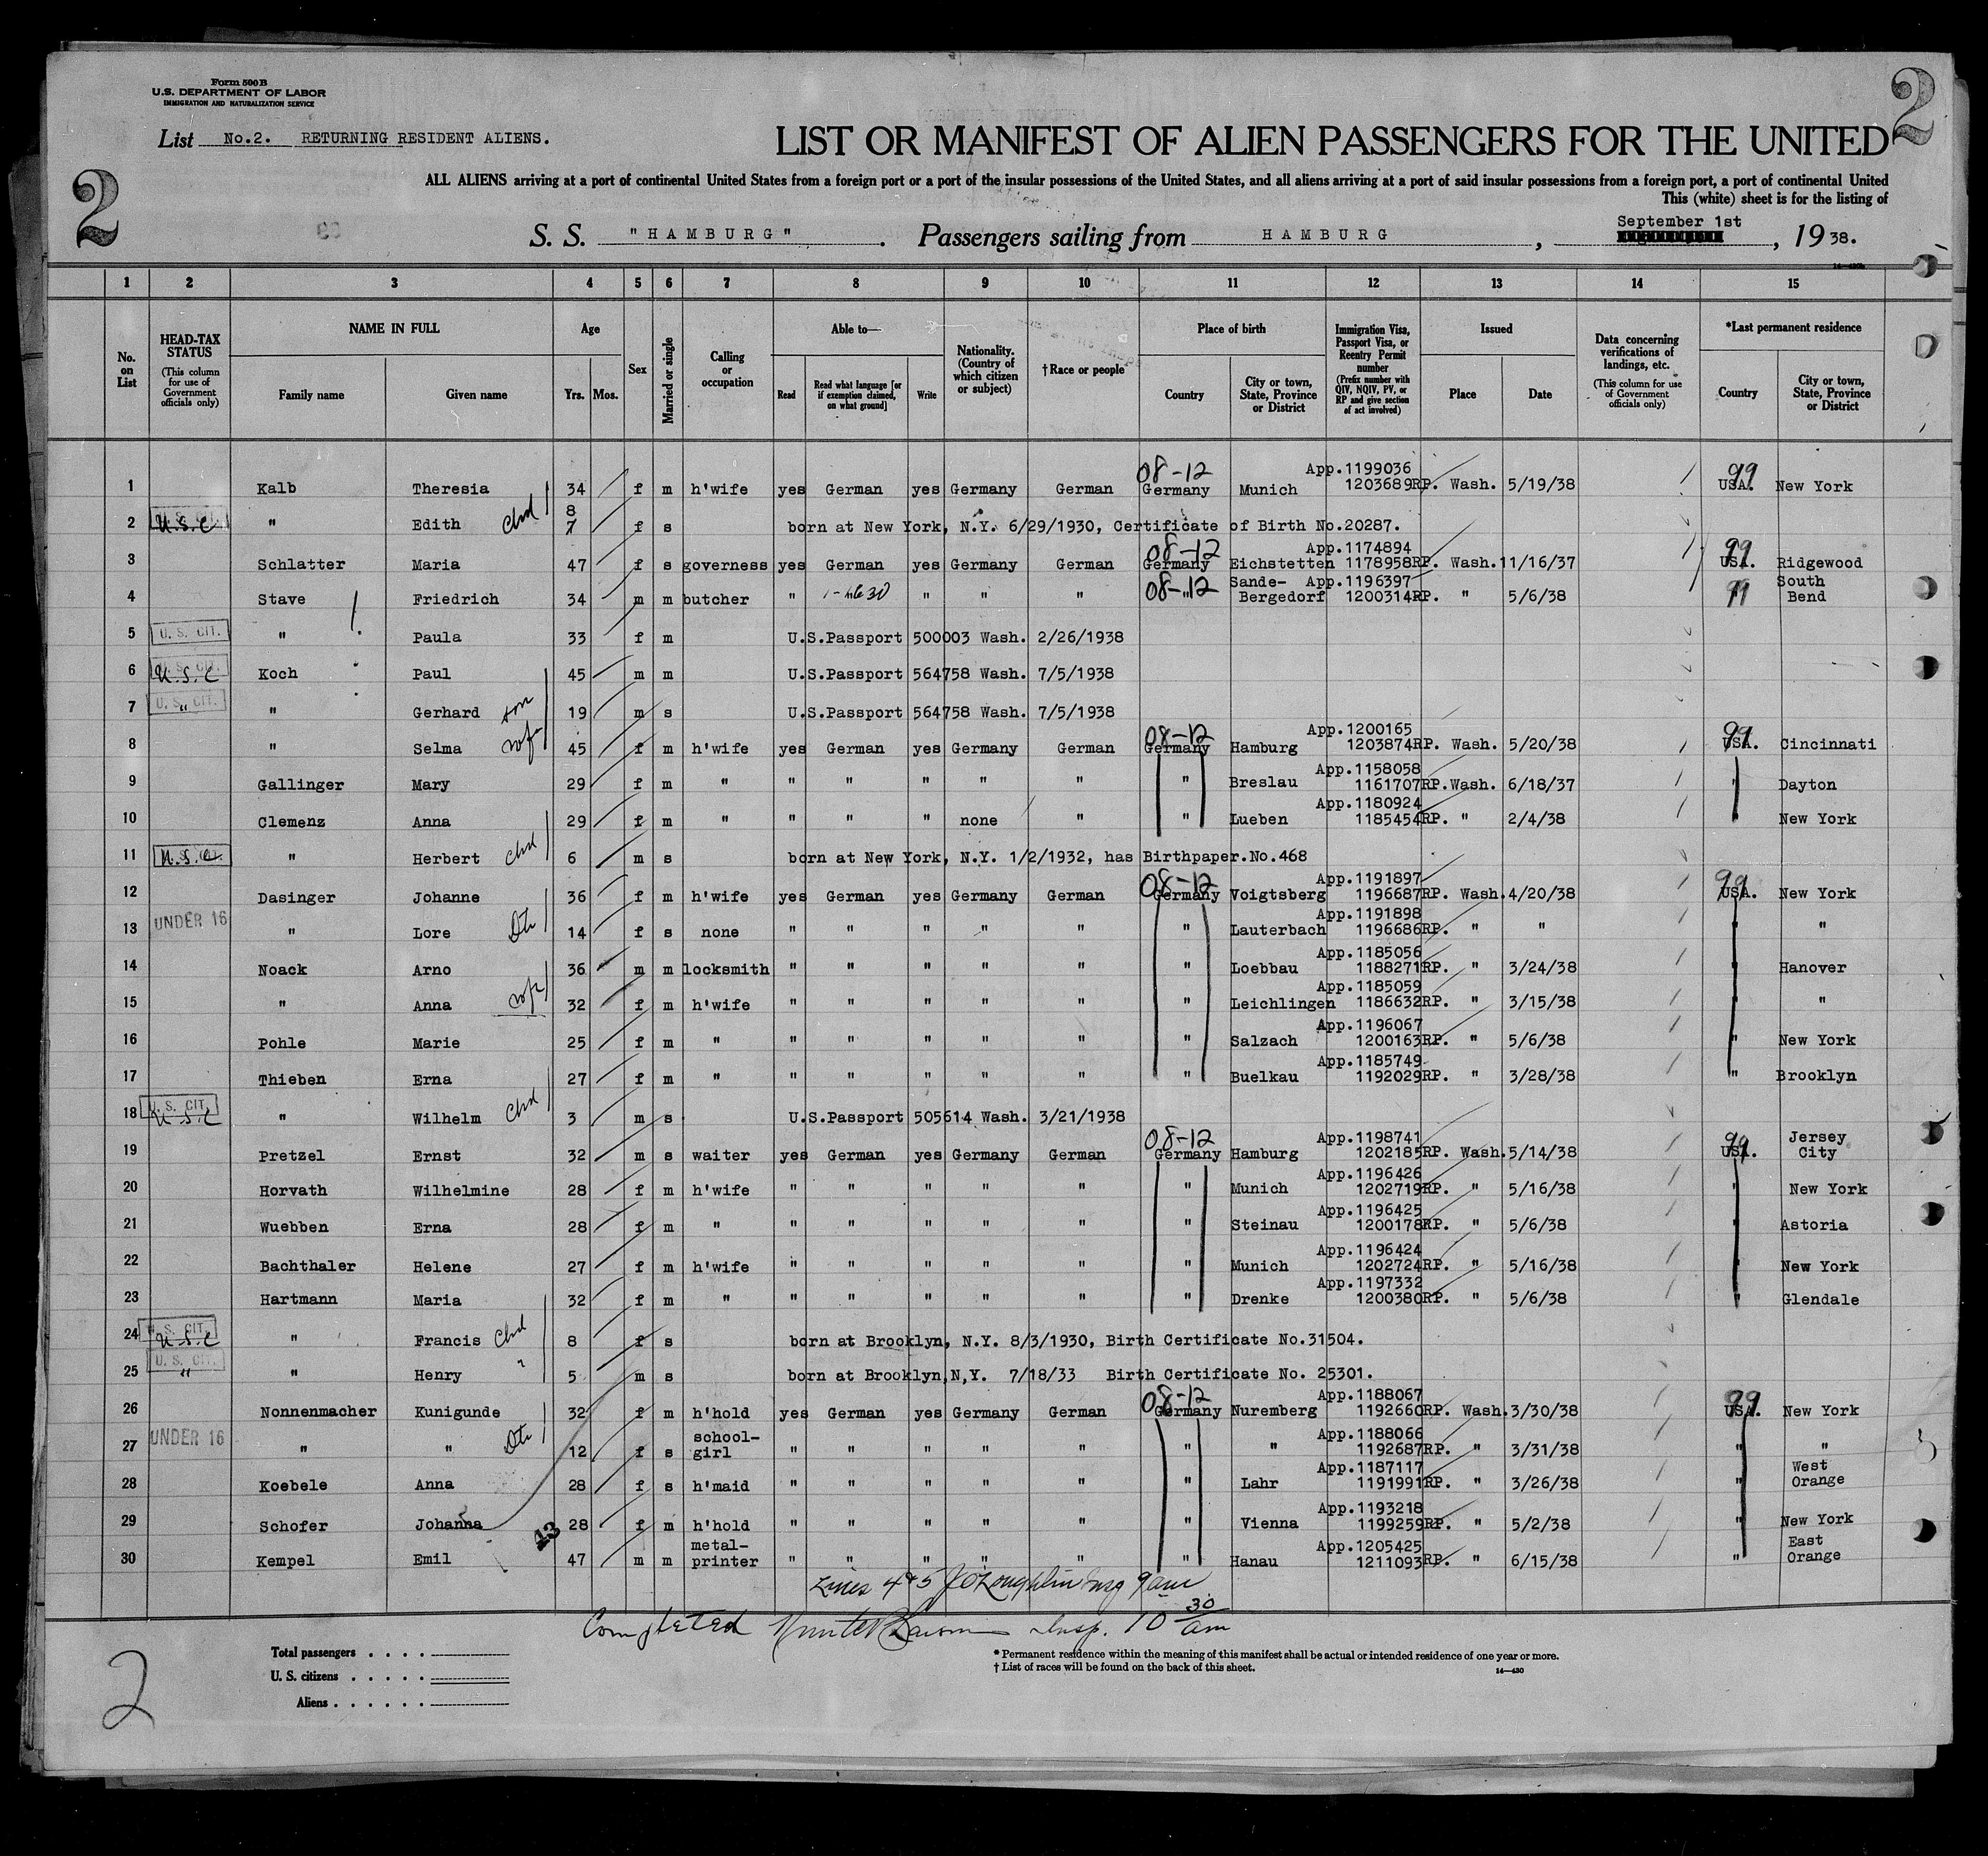 Form 500B
U.S. DEPARTMENT OF LABOR
IMMIGRATION AND NATURALIZATION SERVICE
2
List No.2. RETURNING RESIDENT ALIENS.
LIST OR MANIFEST OF ALIEN PASSENGERS FOR THE UNITED
2
ALL ALIENS arriving at a port of continental United States from a foreign port or a port of the insular possessions of the United States, and all aliens arriving at a port of said insular possessions from a foreign port, a port of continental United
This (white) sheet is for the listing of
S. S. "HAMBURG". Passengers sailing from HAMBURG, September 1st, 1938.
1 2 3 4 5 6 7 8 9 10 11 12 13 14 15
No. on List
HEAD-TAX STATUS (This column for use of Government officials only)
NAME IN FULL Family name Given name
Age Yrs. Mos.
Sex
Married or single
Calling or occupation
Able to— Read Read what language [or if exemption claimed, on what ground] Write
Nationality. (Country of which citizen or subject)
†Race or people
Place of birth Country City or town, State, Province or District
Immigration Visa, Passport Visa, or Reentry Permit number (Prefix number with QIV, NQIV, PV, or RP and give section of act involved)
Issued Place Date
Data concerning verifications of landings, etc. (This column for use of Government officials only)
*Last permanent residence Country City or town, State, Province or District
1 Kalb Theresia 34 f m h'wife yes German yes Germany German 08-12 Germany Munich App.1199036 1203689RP. Wash. 5/19/38 99 USA. New York
2 U.S.C " Edith Chd 8 7 f s born at New York, N.Y. 6/29/1930, Certificate of Birth No.20287.
3 Schlatter Maria 47 f s governess yes German yes Germany German 08-12 Germany Eichstetten App.1174894 1178958RP. Wash.11/16/37 99 USA. Ridgewood
4 Stave Friedrich 34 m m butcher " " " " 08-12 " Sande-Bergedorf App.1196397 1200314RP. " 5/6/38 South Bend
5 U. S. CIT. " Paula 33 f m U.S.Passport 500003 Wash. 2/26/1938
6 U.S.C Koch Paul 45 m m U.S.Passport 564758 Wash. 7/5/1938
7 U. S. CIT. " " Gerhard son 19 m s U.S.Passport 564758 Wash. 7/5/1938
8 " Selma wfe 45 f m h'wife yes German yes Germany German 08-12 Germany Hamburg App.1200165 1203874RP. Wash. 5/20/38 99 USA. Cincinnati
9 Gallinger Mary 29 f m " " " " " " " Breslau App.1158058 1161707RP.Wash. 6/18/37 " Dayton
10 Clemenz Anna 29 f m " " " " none " " Lueben App.1180924 1185454RP. " 2/4/38 " New York
11 U.S.C. " Herbert Chd 6 m s born at New York, N.Y. 1/2/1932, has Birthpaper.No.468
12 Dasinger Johanne 36 f m h'wife yes German yes Germany German 08-12 Germany Voigtsberg App.1191897 1196687RP. Wash.4/20/38 99 USA. New York
13 UNDER 16 " Lore Dtr 14 f s none " " " " " " Lauterbach App.1191898 1196686RP. " " " "
14 Noack Arno 36 m m locksmith " " " " " " Loebbau App.1185056 1188271RP. " 3/24/38 " Hanover
15 " Anna wfe 32 f m h'wife " " " " " " Leichlingen App.1185059 1186632RP. " 3/15/38 " "
16 Pohle Marie 25 f m " " " " " " " Salzach App.1196067 1200163RP. " 5/6/38 " New York
17 Thieben Erna 27 f m " " " " " " " Buelkau App.1185749 1192029RP. " 3/28/38 " Brooklyn
18 U. S. CIT. U.S.C " Wilhelm Chd 3 m s U.S.Passport 505614 Wash. 3/21/1938
19 Pretzel Ernst 32 m s waiter yes German yes Germany German 08-12 Germany Hamburg App.1198741 1202185RP. Wash.5/14/38 99 USA. Jersey City
20 Horvath Wilhelmine 28 f m h'wife " " " " " " Munich App.1196426 1202719RP. " 5/16/38 " New York
21 Wuebben Erna 28 f m " " " " " " " Steinau App.1196425 1200178RP. " 5/6/38 " Astoria
22 Bachthaler Helene 27 f m h'wife " " " " " " Munich App.1196424 1202724RP. " 5/16/38 " New York
23 Hartmann Maria 32 f m " " " " " " " Drenke App.1197332 1200380RP. " 5/6/38 " Glendale
24 U. S. CIT. U.S.C " Francis Chd 8 f s born at Brooklyn, N.Y. 8/3/1930, Birth Certificate No.31504.
25 U. S. CIT. " " Henry " 5 m s born at Brooklyn,N,Y. 7/18/33 Birth Certificate No. 25301.
26 Nonnenmacher Kunigunde 32 f m h'hold yes German yes Germany German 08-12 Germany Nuremberg App.1188067 1192660RP. Wash.3/30/38 99 USA. New York
27 UNDER 16 " " Dtr 12 f s school-girl " " " " " " " App.1188066 1192687RP. " 3/31/38 " "
28 Koebele Anna 28 f s h'maid " " " " " " Lahr App.1187117 1191991RP. " 3/26/38 " West Orange
29 Schofer Johanna 13 28 f m h'hold " " " " " " Vienna App.1193218 1199259RP. " 5/2/38 " New York
30 Kempel Emil 47 m m metal-printer " " " " " " Hanau App.1205425 1211093RP. " 6/15/38 " East Orange
Lines 4+5 J O'Loughlin Insp 9 am
Completed Insp. 10 30 am
Total passengers
U. S. citizens
Aliens
* Permanent residence within the meaning of this manifest shall be actual or intended residence of one year or more.
† List of races will be found on the back of this sheet.
14—430
2